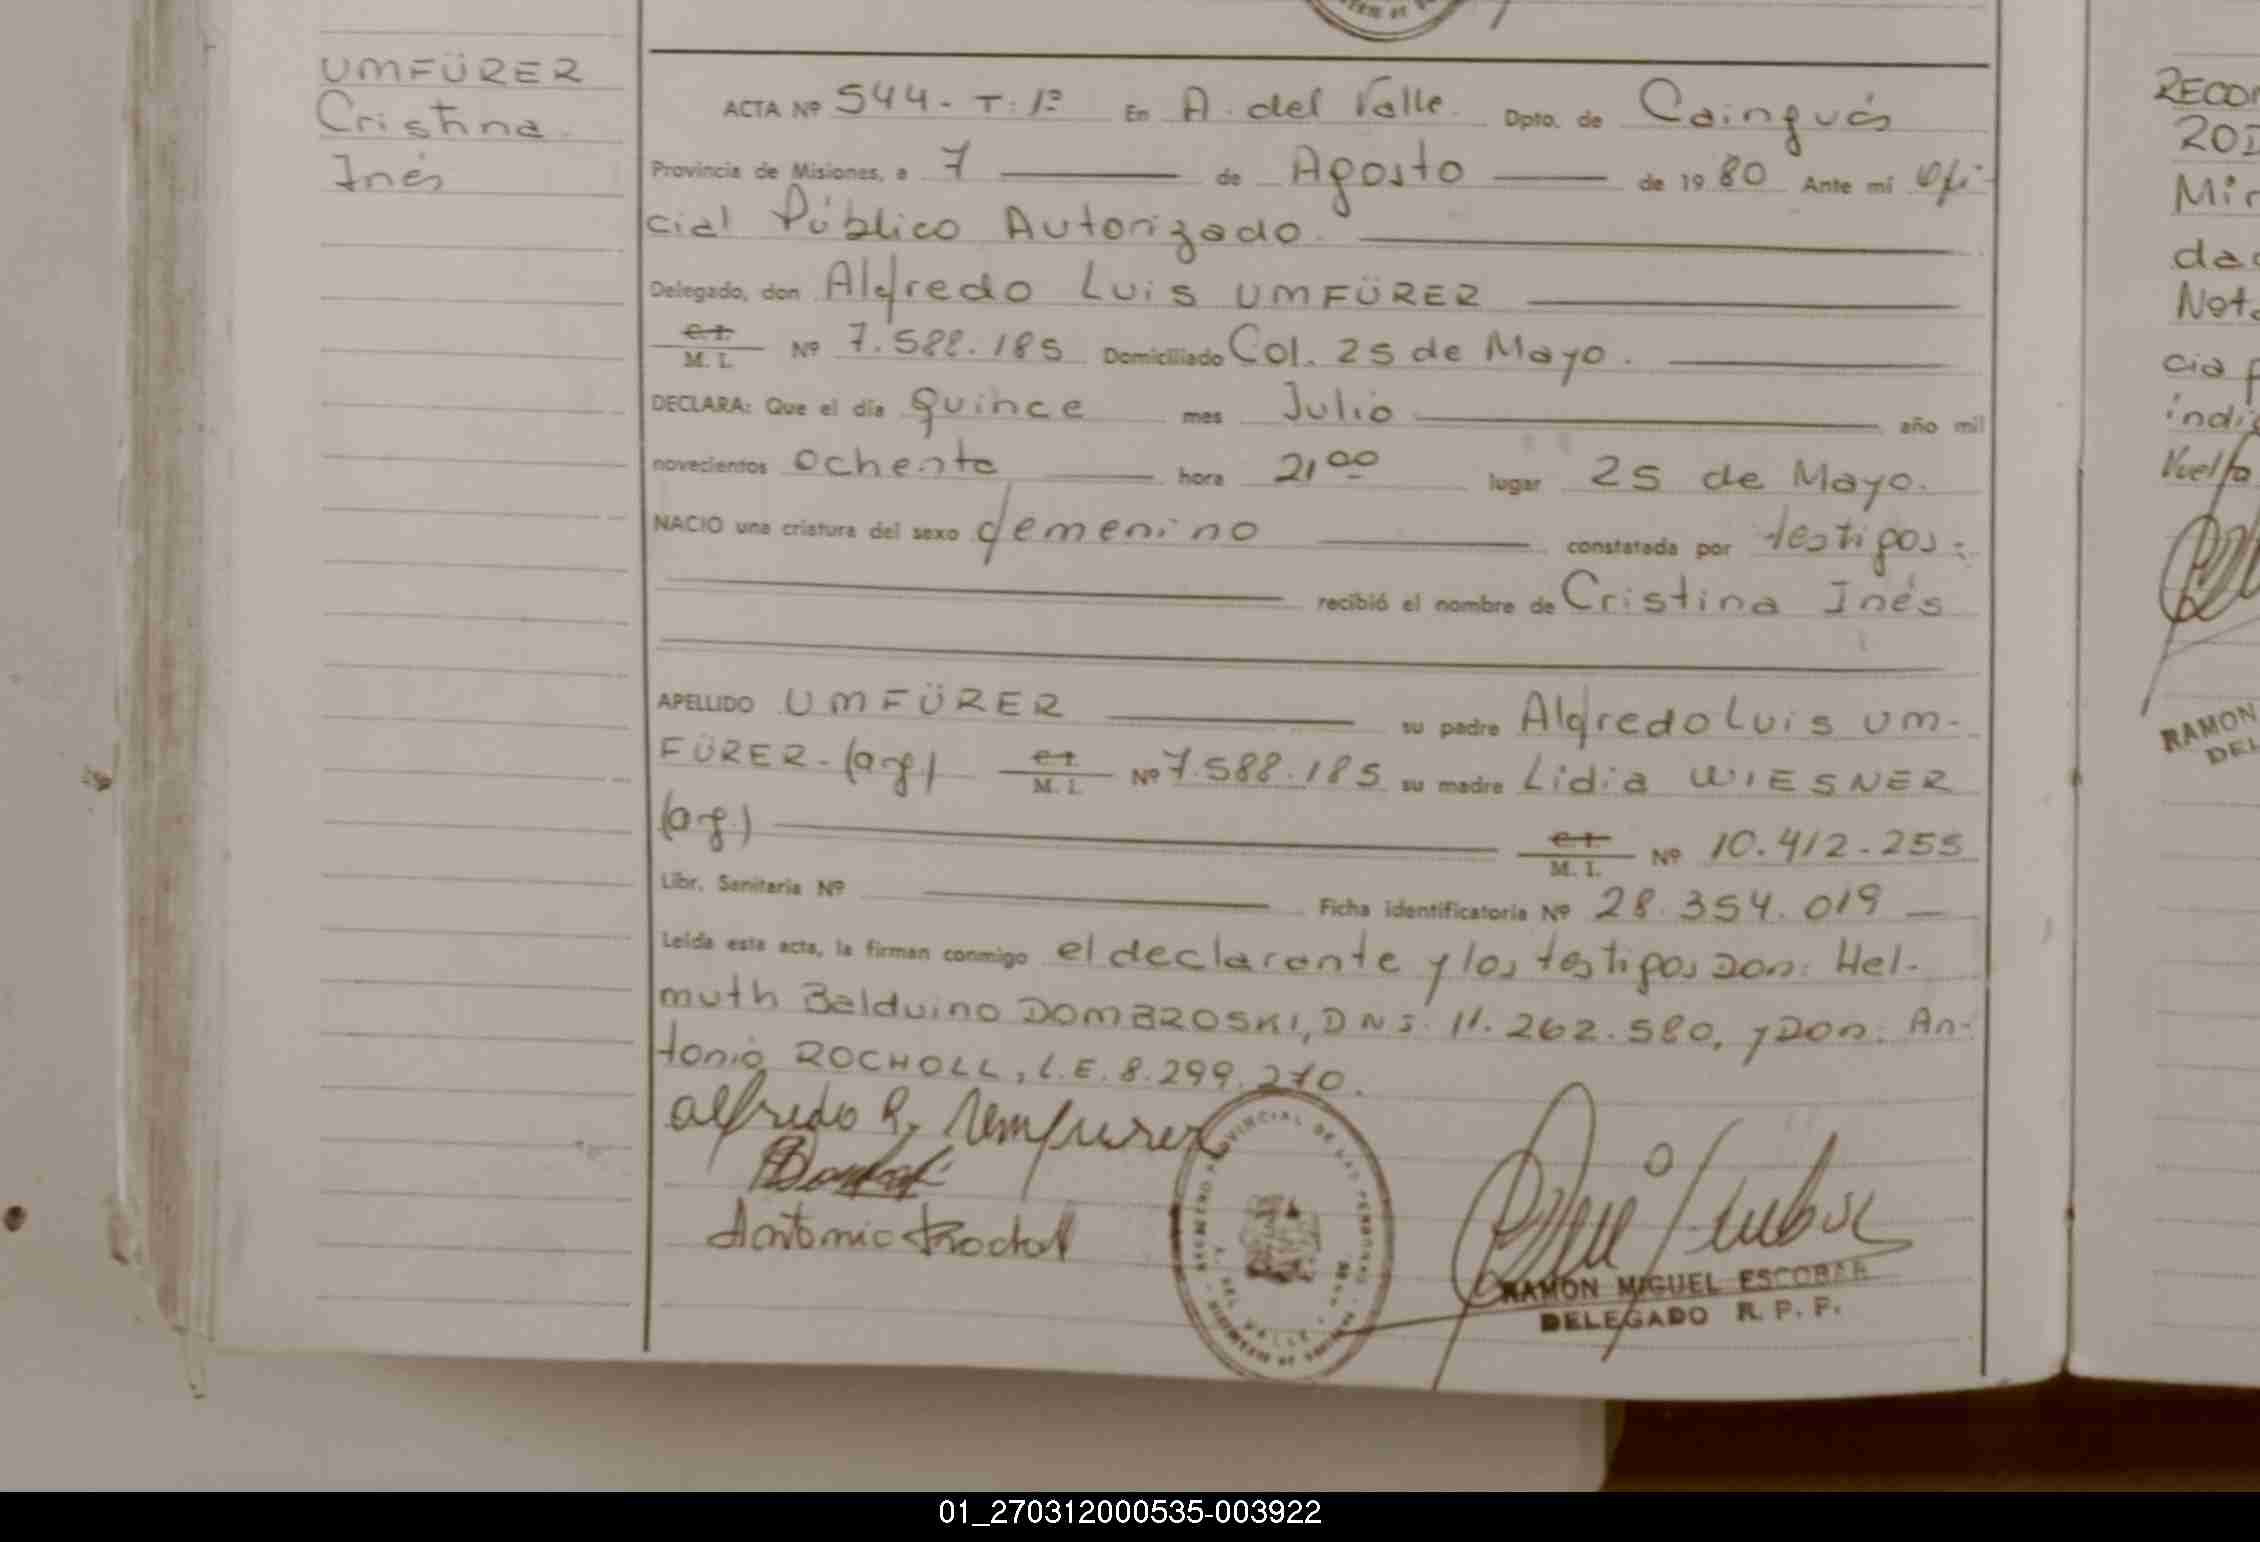 UMFÜRER
Cristina
Inés
ACTA Nº 544- T: 1º En A. del Valle. Dpto. de Cainguás
Provincia de Misiones, a 7 de Agosto de 1980 Ante mí Ofi-
cial Público Autorizado.
Delegado, don Alfredo Luis UMFÜRER
C. I.
M. I. Nº 7.588.185 Domiciliado Col. 25 de Mayo.
DECLARA: Que el día quince mes Julio año mil
novecientos ochenta hora 21⁰⁰ lugar 25 de Mayo.
NACIO una criatura del sexo femenino constatada por testigos:
recibió el nombre de Cristina Inés
APELLIDO UMFÜRER su padre Alfredo Luis UM-
FÜRER-(arg.) C. I. M. I. Nº 7.588.185 su madre Lidia WIESNER
(arg.) C. I. M. I. Nº 10.412.255
Libr. Sanitaria Nº Ficha identificatoria Nº 28.354.019
Leída esta acta, la firman conmigo el declarante y los testigos Don: Hel-
muth Balduino DOMBROSKI, DNI. 11.262.580, y Don: An-
tonio ROCHOLL, L.E. 8.299.270.
Alfredo
Antonio
REGISTRO PROVINCIAL DE LAS PERSONAS
A. DEL VALLE
RAMON MIGUEL ESCOBAR
DELEGADO R. P. P.
RECO
ROD
Mi
da
Not
cia p
indi
Vuelta
RAMON
DEL
01_270312000535-003922